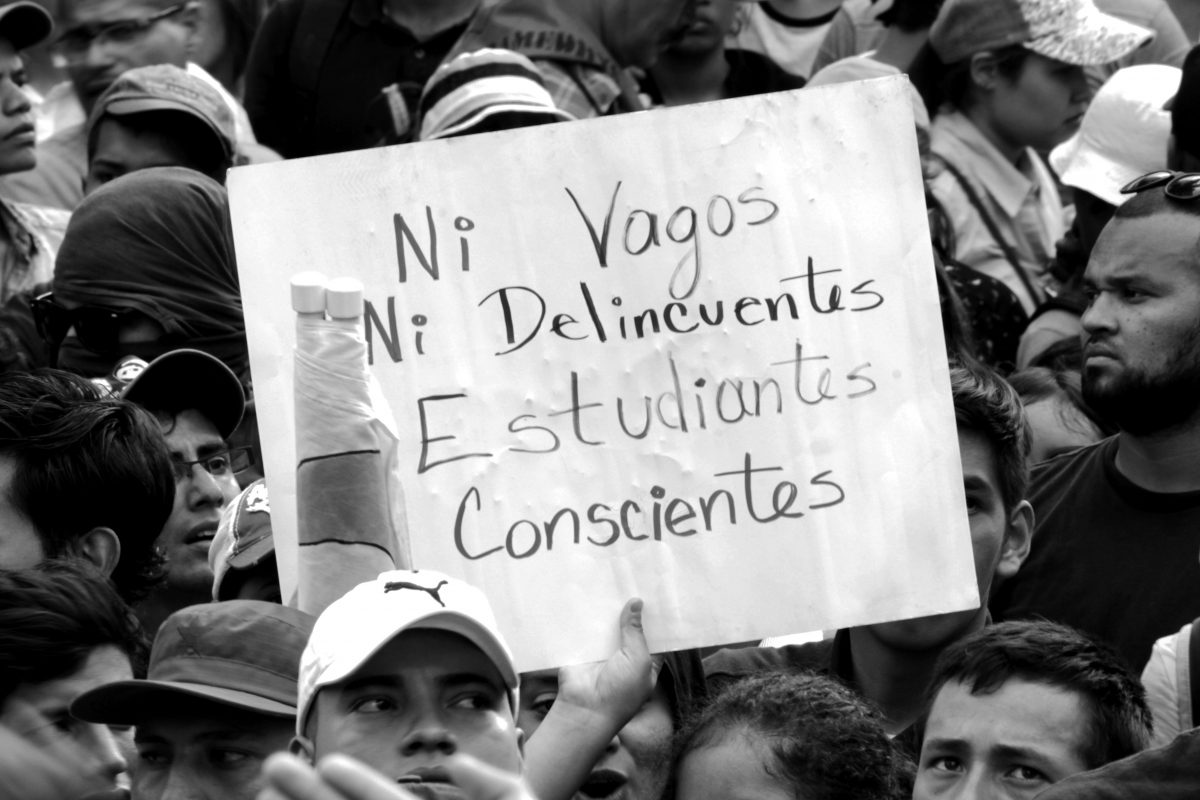 Ni Vagos
Ni Delincuentes
Estudiantes
Conscientes